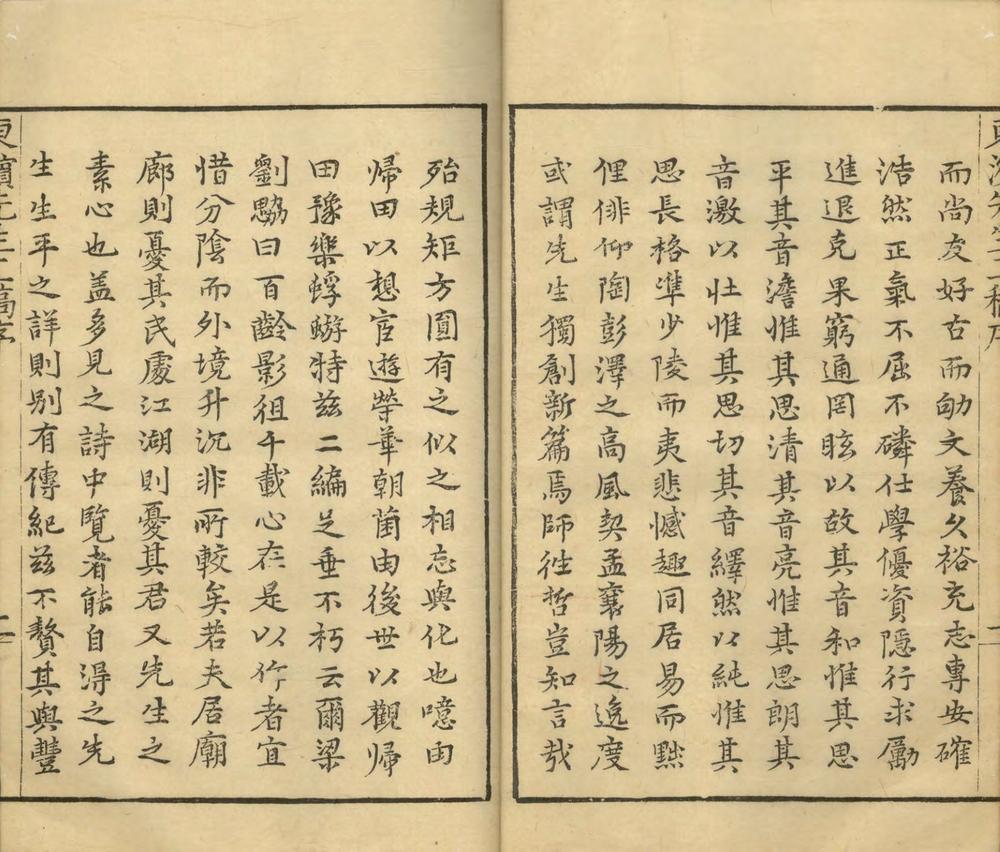 而尚友好古而劬文養久裕充志專安確
浩然正氣不屈不磷仕學優資隱行求勵
進退克果窮通罔眩以故其音和惟其思
平其音澹惟其思清其音亮惟其思朗其
音激以壯惟其思切其音繹然以純惟其
思長格準少陵而夷悲憾趣同居易而黜
俚俳仰陶彭澤之高風契孟襄陽之逸度
或謂先生獨創新篇焉師徃哲豈知言哉
殆規矩方圓有之似之相忘與化也噫由
帰田以想宦遊榮華朝菌由後世以觀帰
田豫樂蜉蝣特兹二編足垂不朽云爾梁
劉勰曰百齡影徂千載心在是以作者宜
惜分陰而外境升沉非所較矣若夫居廟
廊則憂其民處江湖則憂其君又先生之
素心也盖多見之詩中覽者能自得之先
生生平之詳則别有傳紀兹不贅其與豐